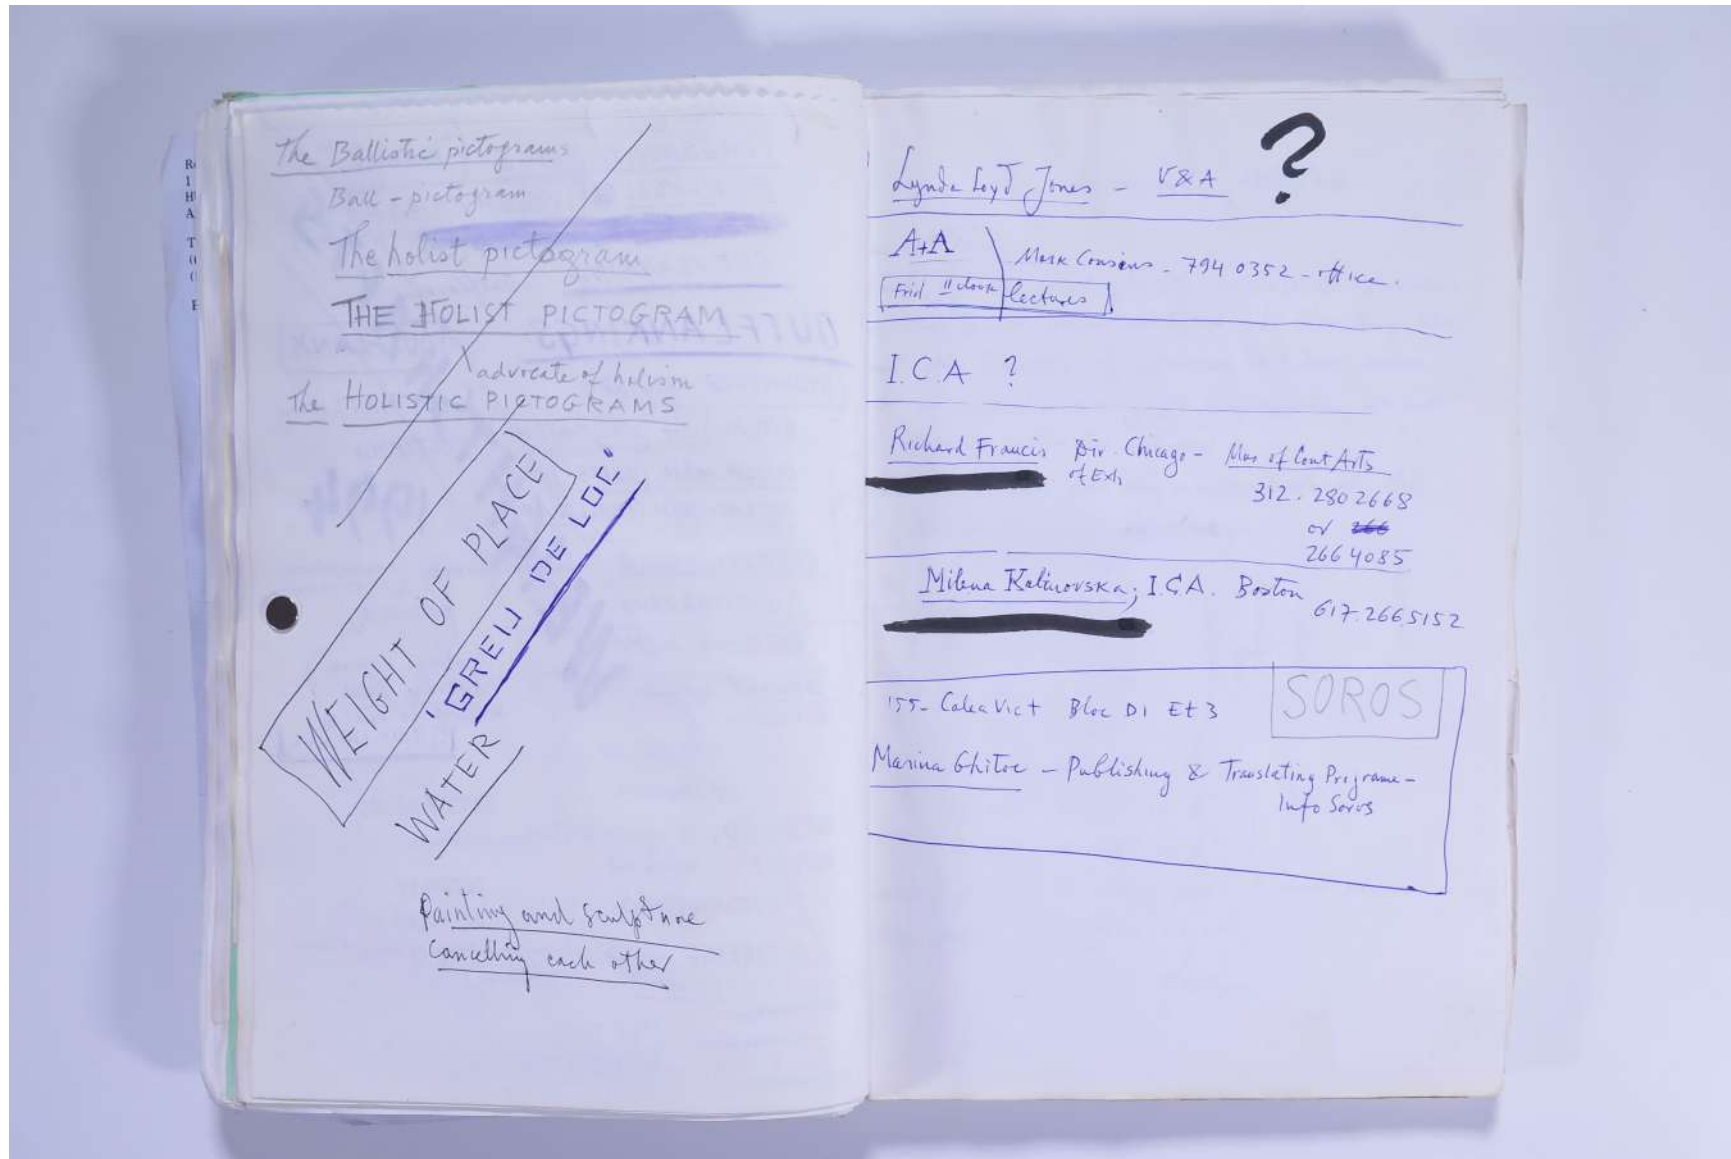 The Ballistic pictograms
Ball - pictogram
The holist pictogram
THE HOLIST PICTOGRAM
advocate of holism
The HOLISTIC PICTOGRAMS
WEIGHT OF PLACE
'GREU DE LOC'
WATER
Painting and sculpture
cancelling each other
Lynda Loyd Jones - V&A ?
A+A
Mark Cousins - 794 0352 - office.
Frid 11 clock lectures
I.C.A ?
Richard Francis Dir. Chicago - Mus of Cont Arts
of Exh
312. 280 2668
or 266
266 4085
Milena Kalinovska, I.C.A. Boston
617.266.5152
SOROS
155- Calea Vict Bloc D1 Et 3
Marina - Publishing & Translating Programe -
Info Soros